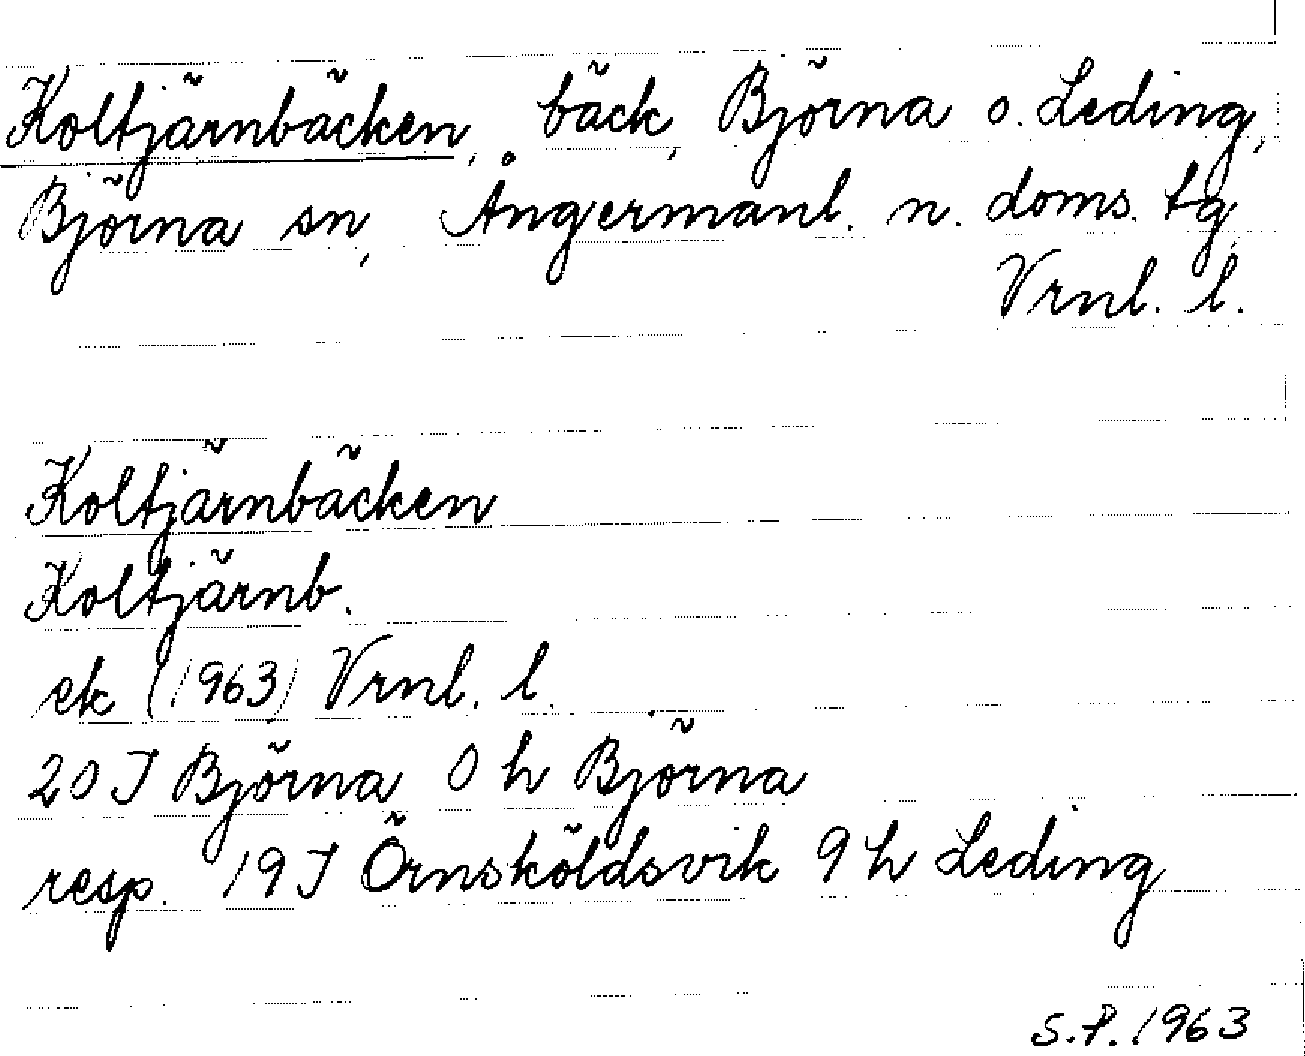 Koltjärnbäcken, bäck, Björna o. Leding,
Björna sn, Ångermanl. n. doms. tg,
Vrnl. l.
Koltjärnbäcken
Koltjärnb.
ek (1963) Vrnl. l.
20 J Björna 0 h Björna
resp. 19 J Örnsköldsvik 9 h Leding
S.P. 1963